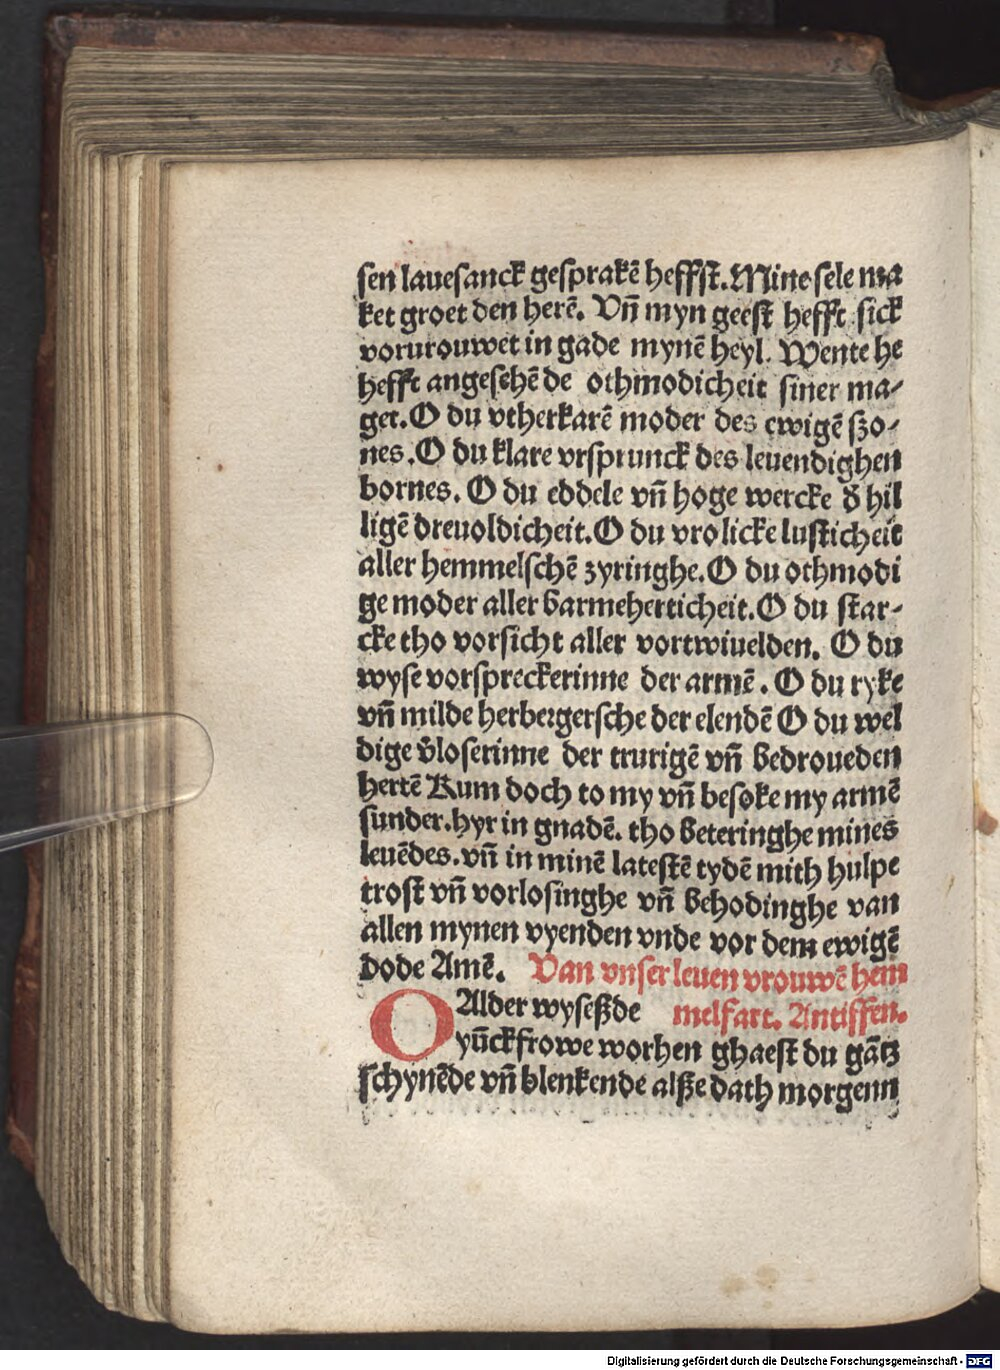 sen lauesanck gesprakē heffst. Mine sele ma
ket groet den herē. Vñ myn geest hefft sick
vorurouwet in gade mynē heyl. Wente he
hefft angesehē de othmodicheit siner ma-
get. O du vtherkarē moder des ewigē szo-
nes. O du klare vrsprunck des leuendighen
bornes. O du eddele vñ hoge wercke d̕ hil
ligē dreuoldicheit. O du vrolicke lusticheit
aller hemmelschē zyringhe. O du othmodi
ge moder aller barmeherticheit. O du star-
cke tho vorsicht aller vortwiuelden. O du
wyse vorspreckerinne der armē. O du ryke
vñ milde herbergersche der elendē O du wel
dige v̄loserinne der trurigē vñ bedroueden
hertē Kum doch to my vñ besoke my armē
sunder. hyr in gnadē. tho beteringhe mines
leuēdes. vñ in minē latestē tydē mith hulpe
trost vñ vorlosinghe vñ behodinghe van
allen mynen vyenden vnde vor dem ewigē
dode Amē. Van vnser leuen vrouwē hem
O Alder wyseßde melfart. Antiffen.
yūckfrowe worhen ghaest du gātz
schynēde vñ blenkende alße dath morgenn
Digitalisierung gefördert durch die Deutsche Forschungsgemeinschaft - DFG